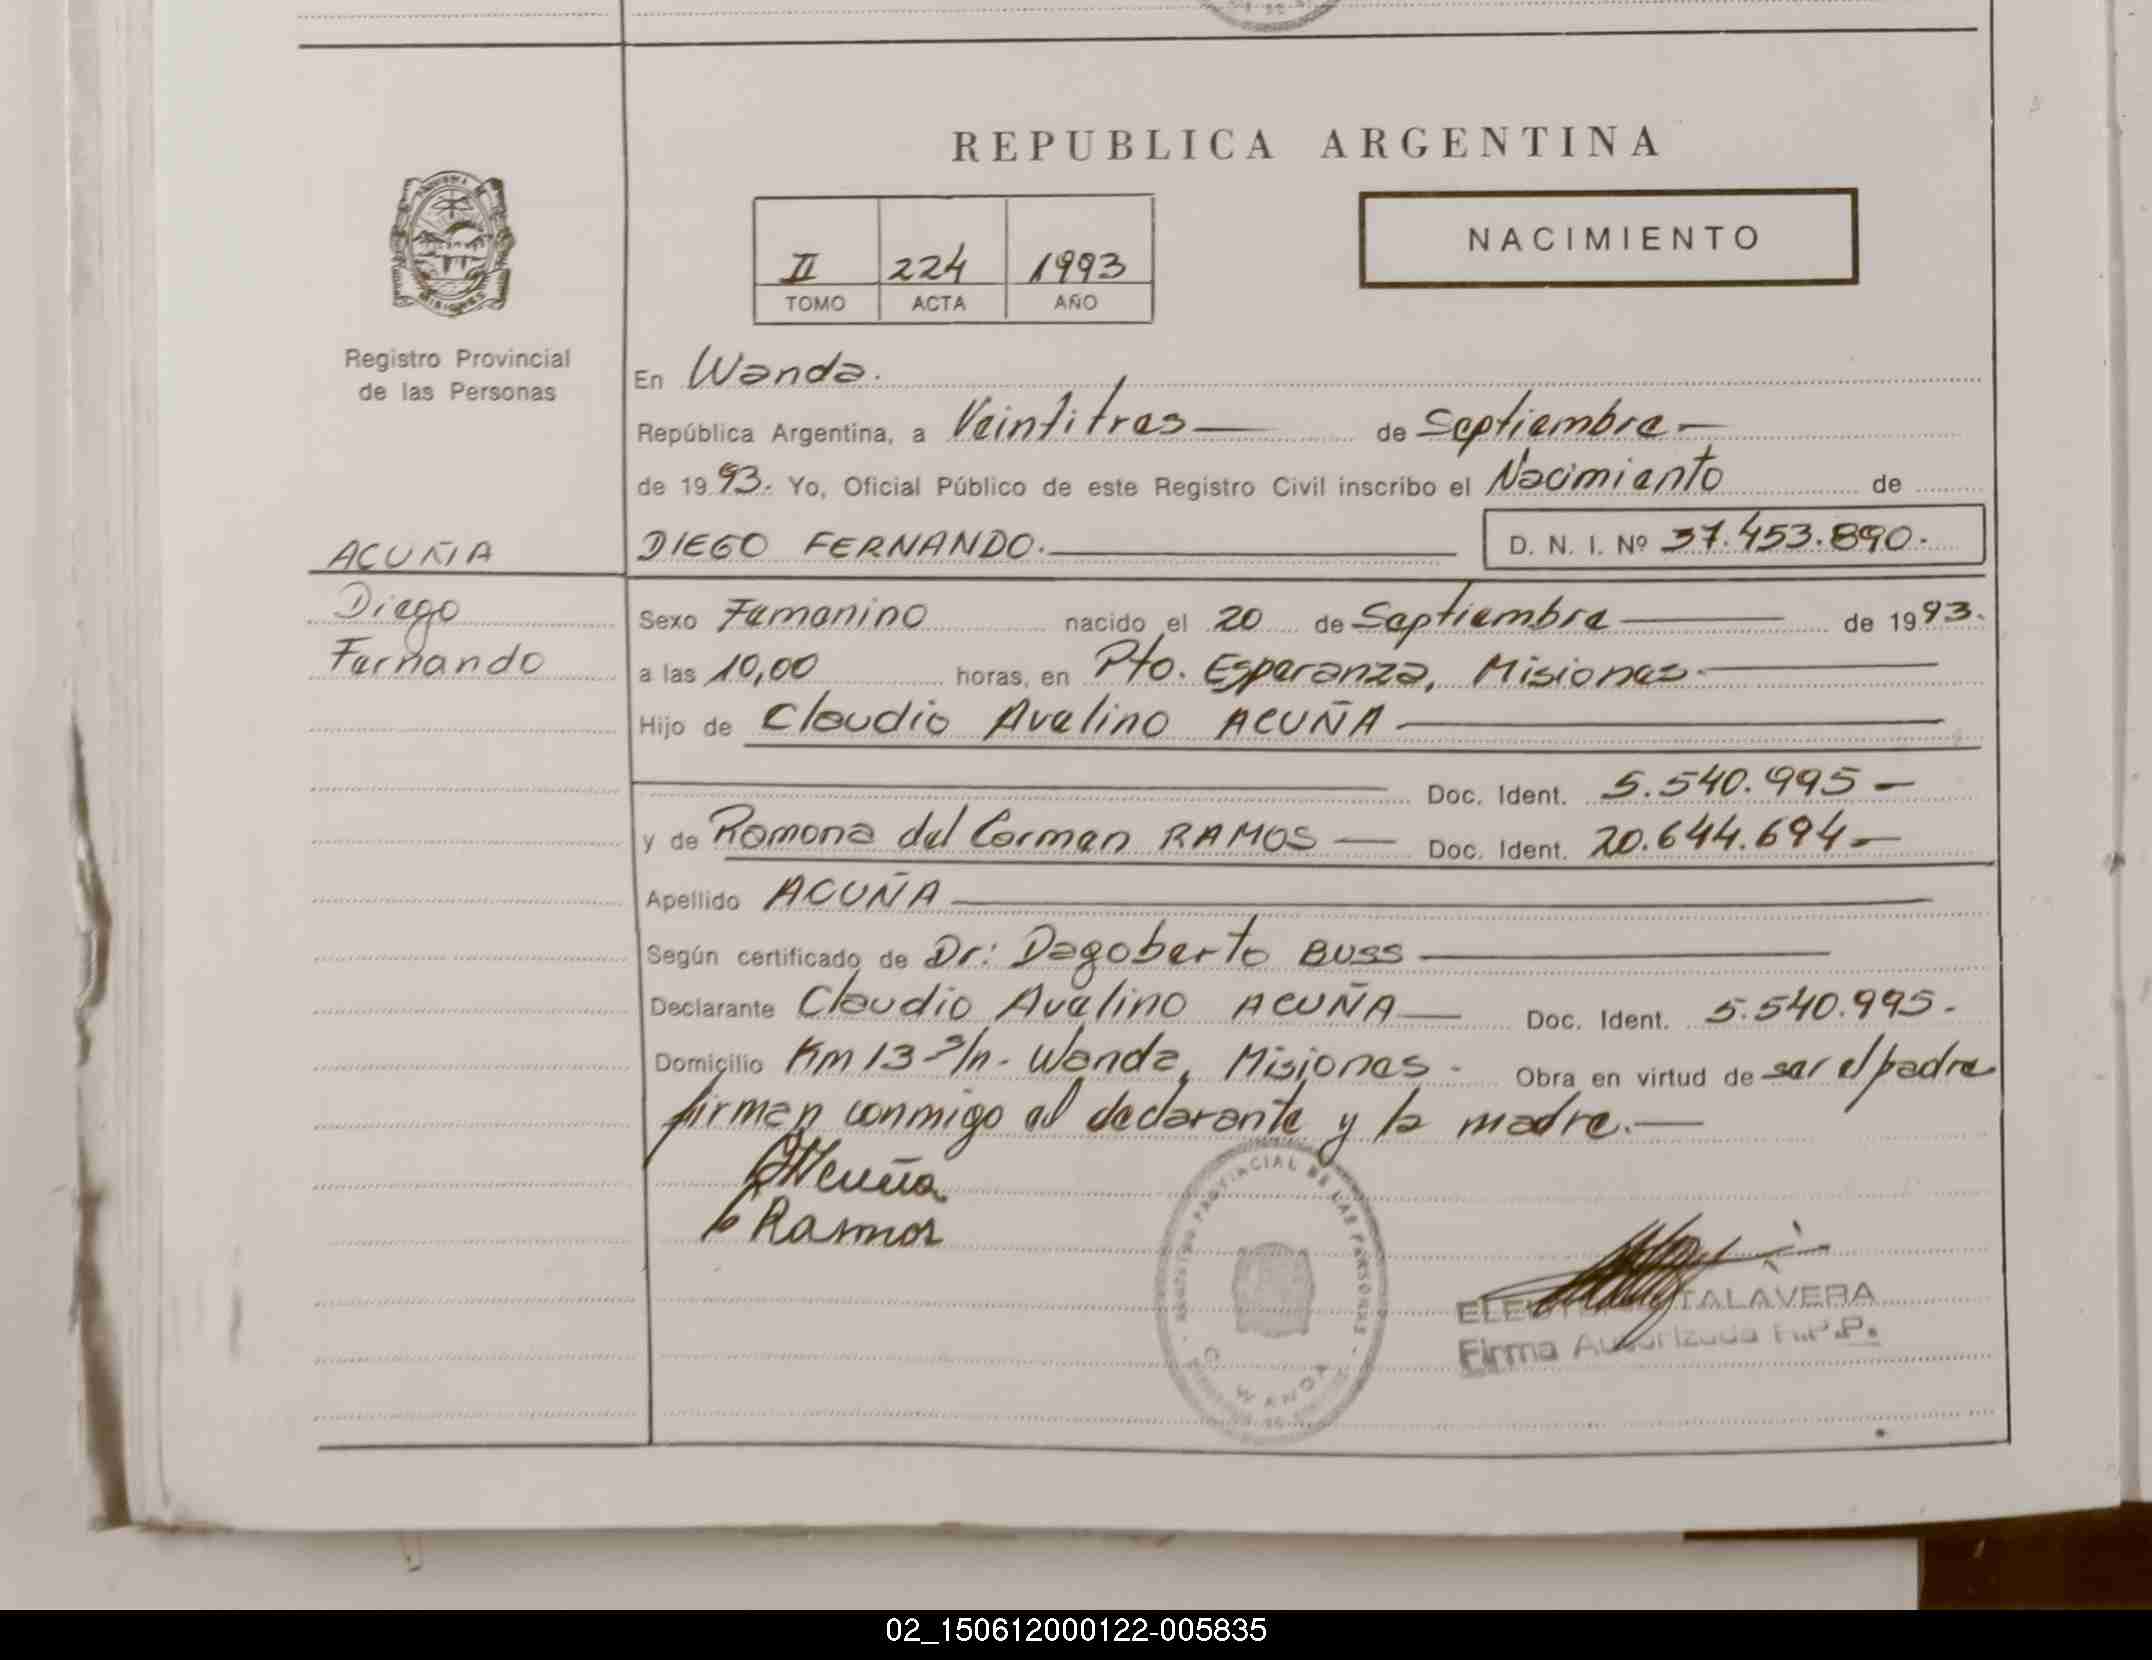 REPUBLICA ARGENTINA
II 224 1993
TOMO ACTA AÑO
NACIMIENTO
Registro Provincial
de las Personas
En Wanda.
República Argentina, a Veintitres de Septiembre
de 1993. Yo, Oficial Público de este Registro Civil inscribo el Nacimiento de
ACUÑA
DIEGO FERNANDO. D. N. I. Nº 37.453.890.
Diego
Fernando
Sexo Femenino nacido el 20 de Septiembre de 1993.
a las 10,00 horas, en Pto. Esperanza, Misiones.
Hijo de Claudio Avelino ACUÑA
Doc. Ident. 5.540.995
y de Ramona del Carmen RAMOS Doc. Ident. 20.644.694
Apellido ACUÑA
Según certificado de Dr: Dagoberto BUSS
Declarante Claudio Avelino ACUÑA Doc. Ident. 5.540.995.
Domicilio Km 13 s/n - Wanda, Misiones - Obra en virtud de ser el padre
firman conmigo el declarante y la madre.
Acuña
Ramos
REGISTRO PROVINCIAL DE LAS PERSONAS
WANDA
TALAVERA
Firma Autorizada R.P.P.
02_150612000122-005835